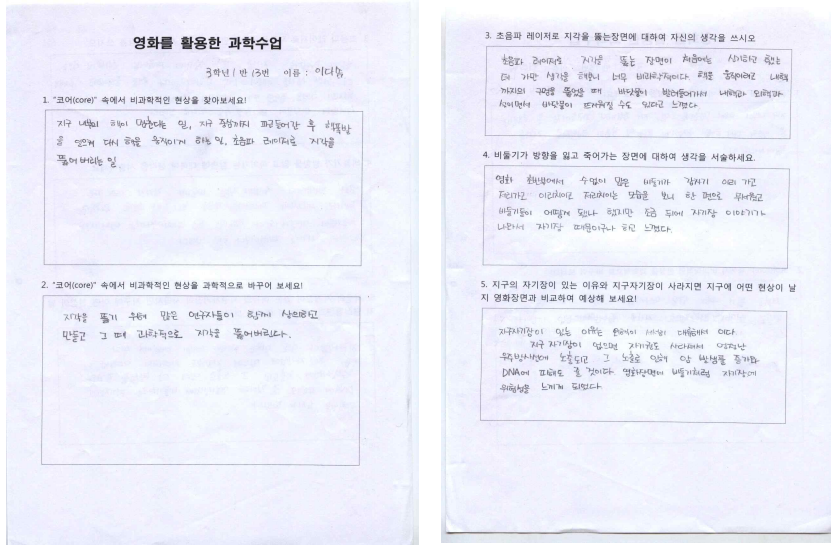 영화를 활용한 과학수업
3학년 1반 13번 이름 : 이다솜
1. "코어(core)" 속에서 비과학적인 현상을 찾아보세요!
지구 내부의 핵이 멈춘다는 일, 지구 중심까지 파고들어간 후 핵폭발
을 일으켜 다시 핵을 움직이게 하는 일, 초음파 레이저로 지각을
뚫어버리는 일
2. "코어(core)" 속에서 비과학적인 현상을 과학적으로 바꾸어 보세요!
지각을 뚫기 위해 많은 연구자들이 함께 상의하고
만들고 그 때 과학적으로 지각을 뚫어버린다.
3. 초음파 레이저로 지각을 뚫는장면에 대하여 자신의 생각을 쓰시오
초음파 레이저로 지각을 뚫는 장면이 처음에는 신기하긴 했는
데 가만 생각을 해보니 너무 비과학적이다. 핵을 움직이려고 내핵
까지의 구멍을 뚫었을 때 바닷물이 빨려들어가서 내핵과 외핵과
섞이면서 바닷물이 뜨거워질 수도 있다고 느꼈다.
4. 비둘기가 방향을 잃고 죽어가는 장면에 대하여 생각을 서술하세요.
영화 초반에서 수없이 많은 비둘기가 갑자기 이리 가고
저리가고 이리치이고 저리치이는 모습을 보니 한 편으로 무서웠고
비둘기들이 어떻게 됐나 했지만 조금 뒤에 자기장 이야기가
나와서 자기장 때문이구나 하고 느꼈다.
5. 지구의 자기장이 있는 이유와 지구자기장이 사라지면 지구에 어떤 현상이 날
지 영화장면과 비교하여 예상해 보세요!
지구자기장이 있는 이유는 대류에서 이다.
지구 자기장이 없으면 자기권도 사라져서 엄청난
우주방사선에 노출되고 그 노출로 인해 암 발생률 증가와
DNA에 피해도 줄 것이다. 영화장면의 비둘기처럼 자기장에
위험성을 느끼게 되었다.